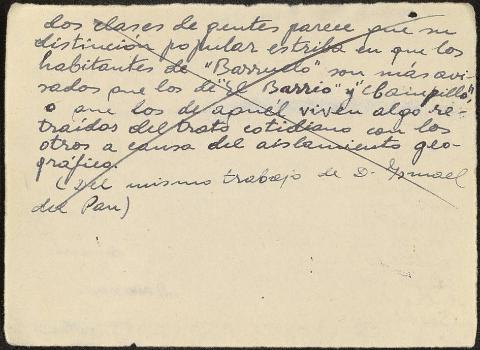 dos clases de gentes parece que su
distinción popular estriba en que los
habitantes de "Barruelo" son más avi-
sados que los de "El Barrio" y "Campillo",
o que los de aquél viven algo re-
traídos del trato cotidiano con los
otros a causa del aislamiento geo-
gráfico.
(Del mismo trabajo de D. Ismael
del Pan)